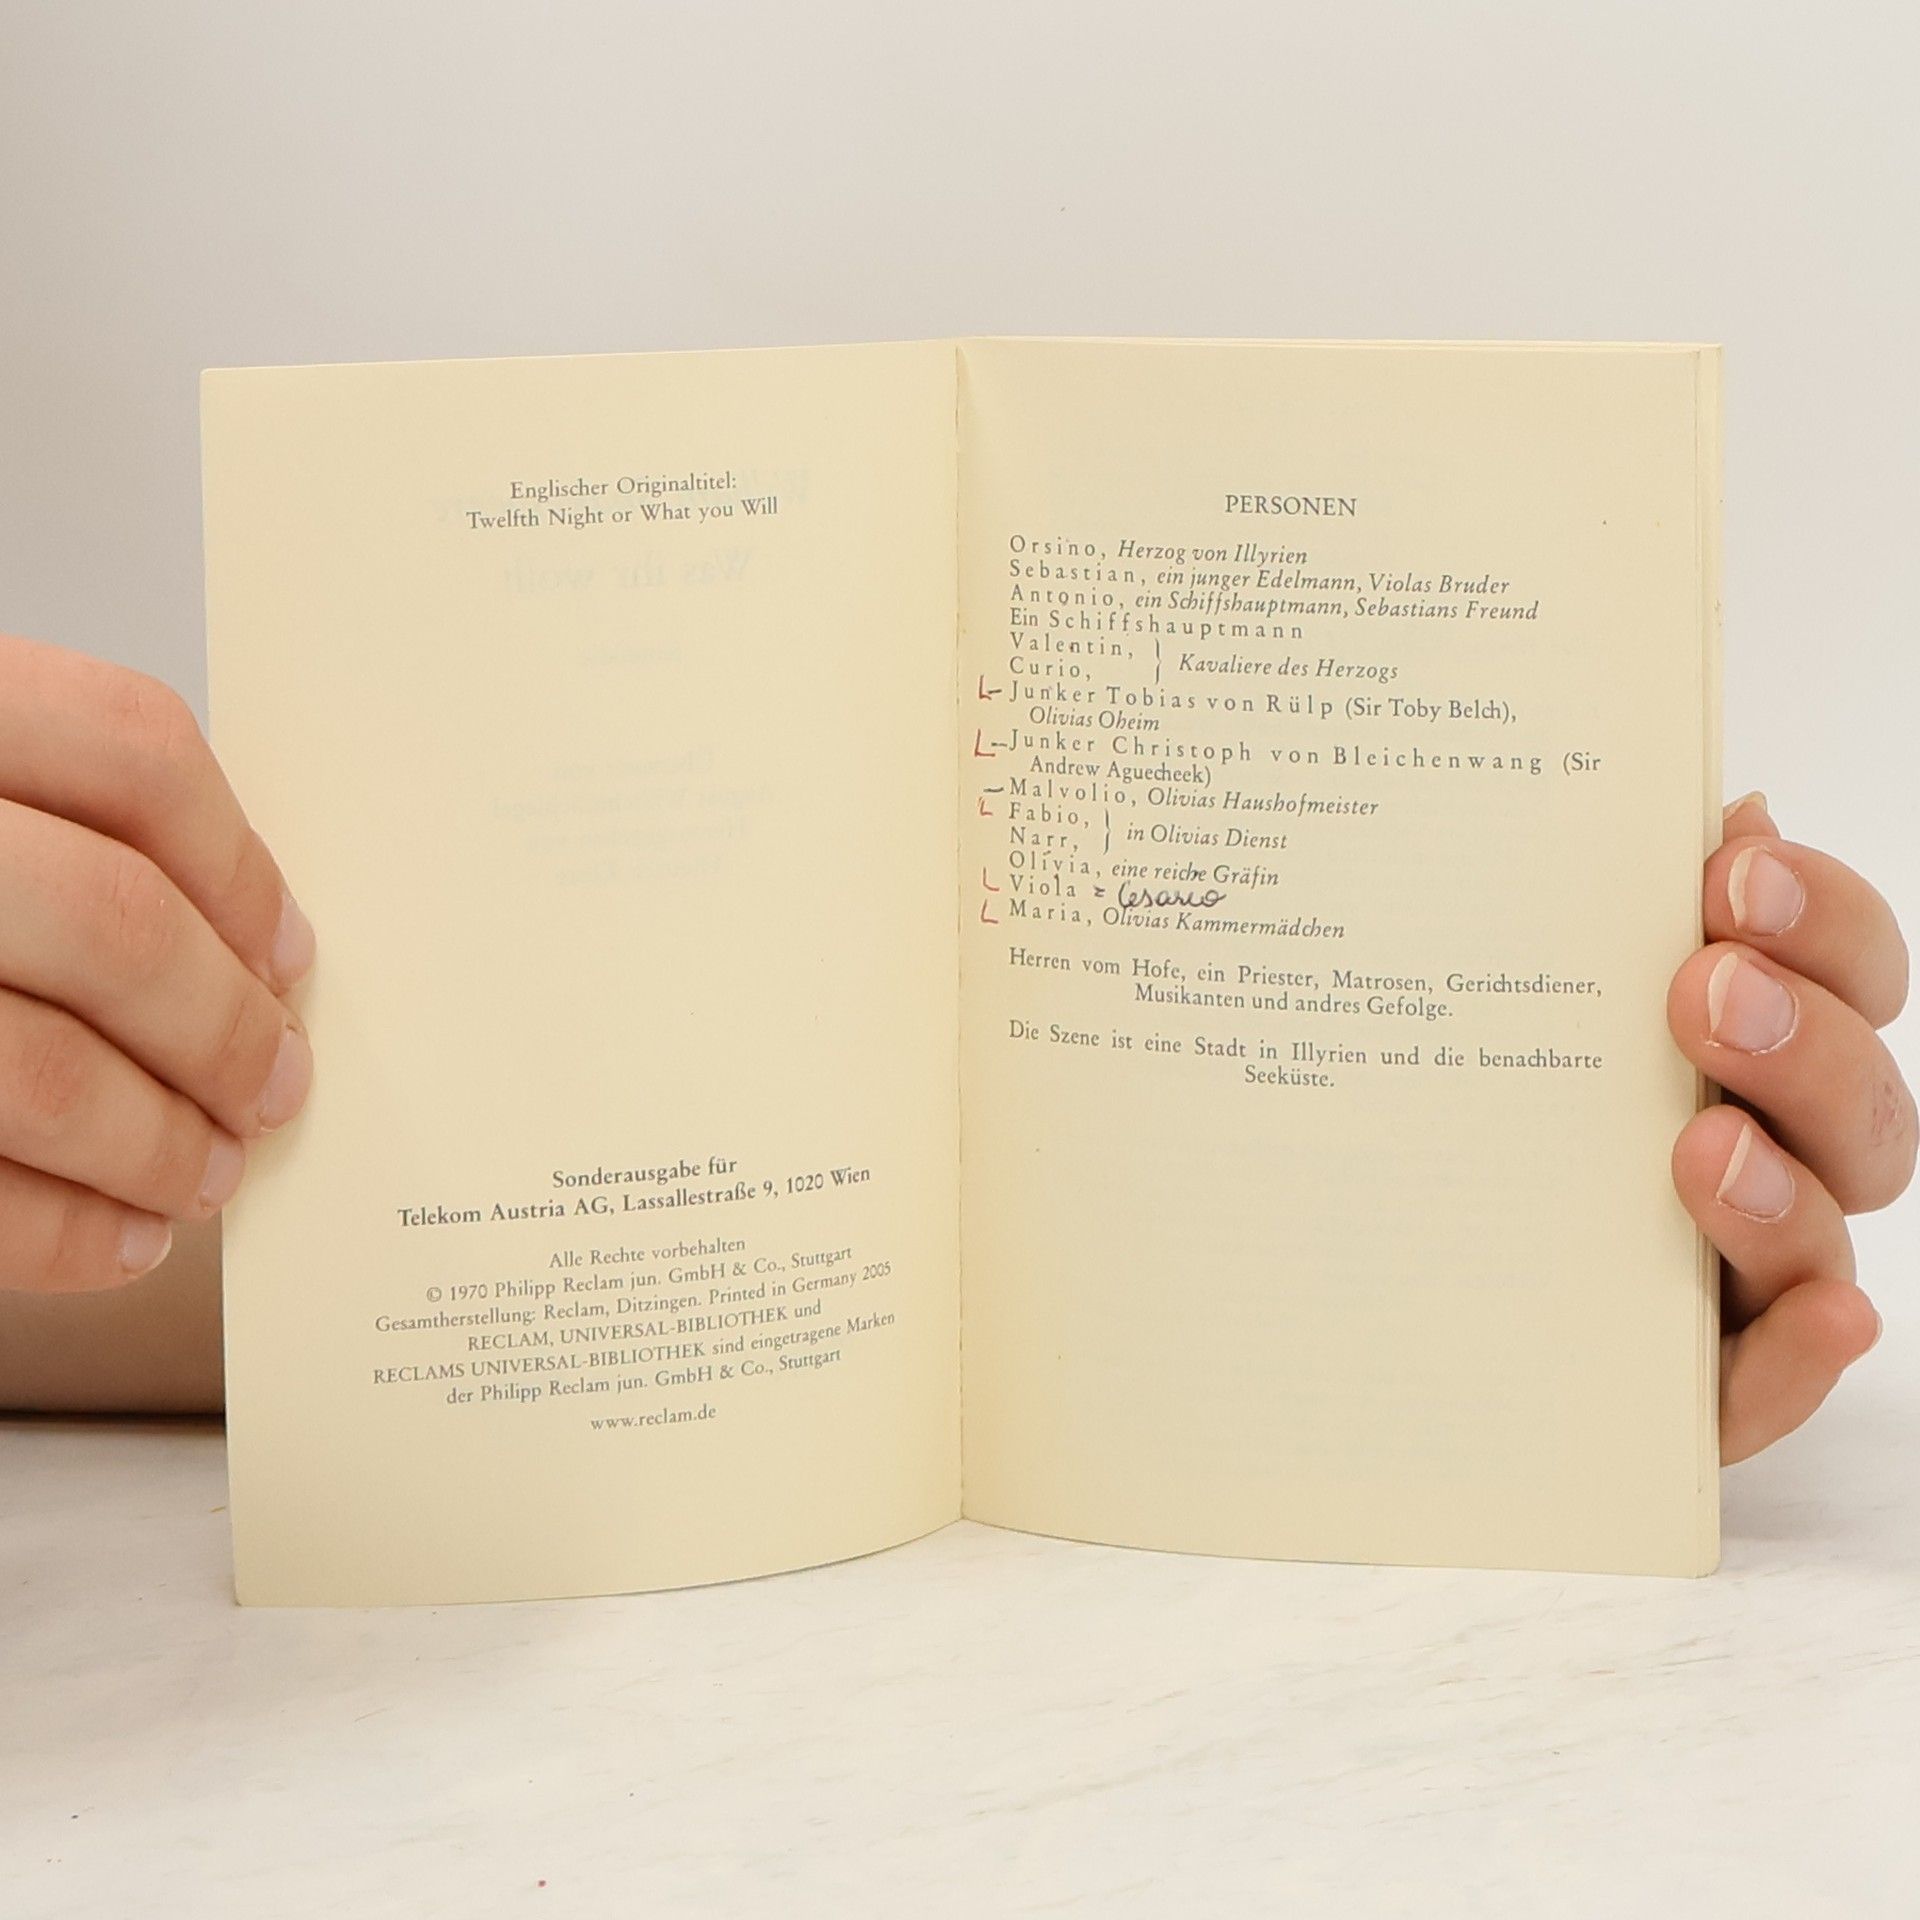 Englischer Originaltitel:
Twelfth Night or What you Will
Sonderausgabe für
Telekom Austria AG, Lassallestraße 9, 1020 Wien
Alle Rechte vorbehalten
© 1970 Philipp Reclam jun. GmbH & Co., Stuttgart
Gesamtherstellung: Reclam, Ditzingen. Printed in Germany 2005
RECLAM, UNIVERSAL-BIBLIOTHEK und
RECLAMS UNIVERSAL-BIBLIOTHEK sind eingetragene Marken
der Philipp Reclam jun. GmbH & Co., Stuttgart
www.reclam.de
PERSONEN
Orsino, Herzog von Illyrien
Sebastian, ein junger Edelmann, Violas Bruder
Antonio, ein Schiffshauptmann, Sebastians Freund
Ein Schiffshauptmann
Valentin,
Curio, } Kavaliere des Herzogs
L– Junker Tobias von Rülp (Sir Toby Belch),
Olivias Oheim
L– Junker Christoph von Bleichenwang (Sir
Andrew Aguecheek)
– Malvolio, Olivias Haushofmeister
L Fabio,
Narr, } in Olivias Dienst
Olivia, eine reiche Gräfin
L Viola = Cesario
L Maria, Olivias Kammermädchen
Herren vom Hofe, ein Priester, Matrosen, Gerichtsdiener,
Musikanten und andres Gefolge.
Die Szene ist eine Stadt in Illyrien und die benachbarte
Seeküste.